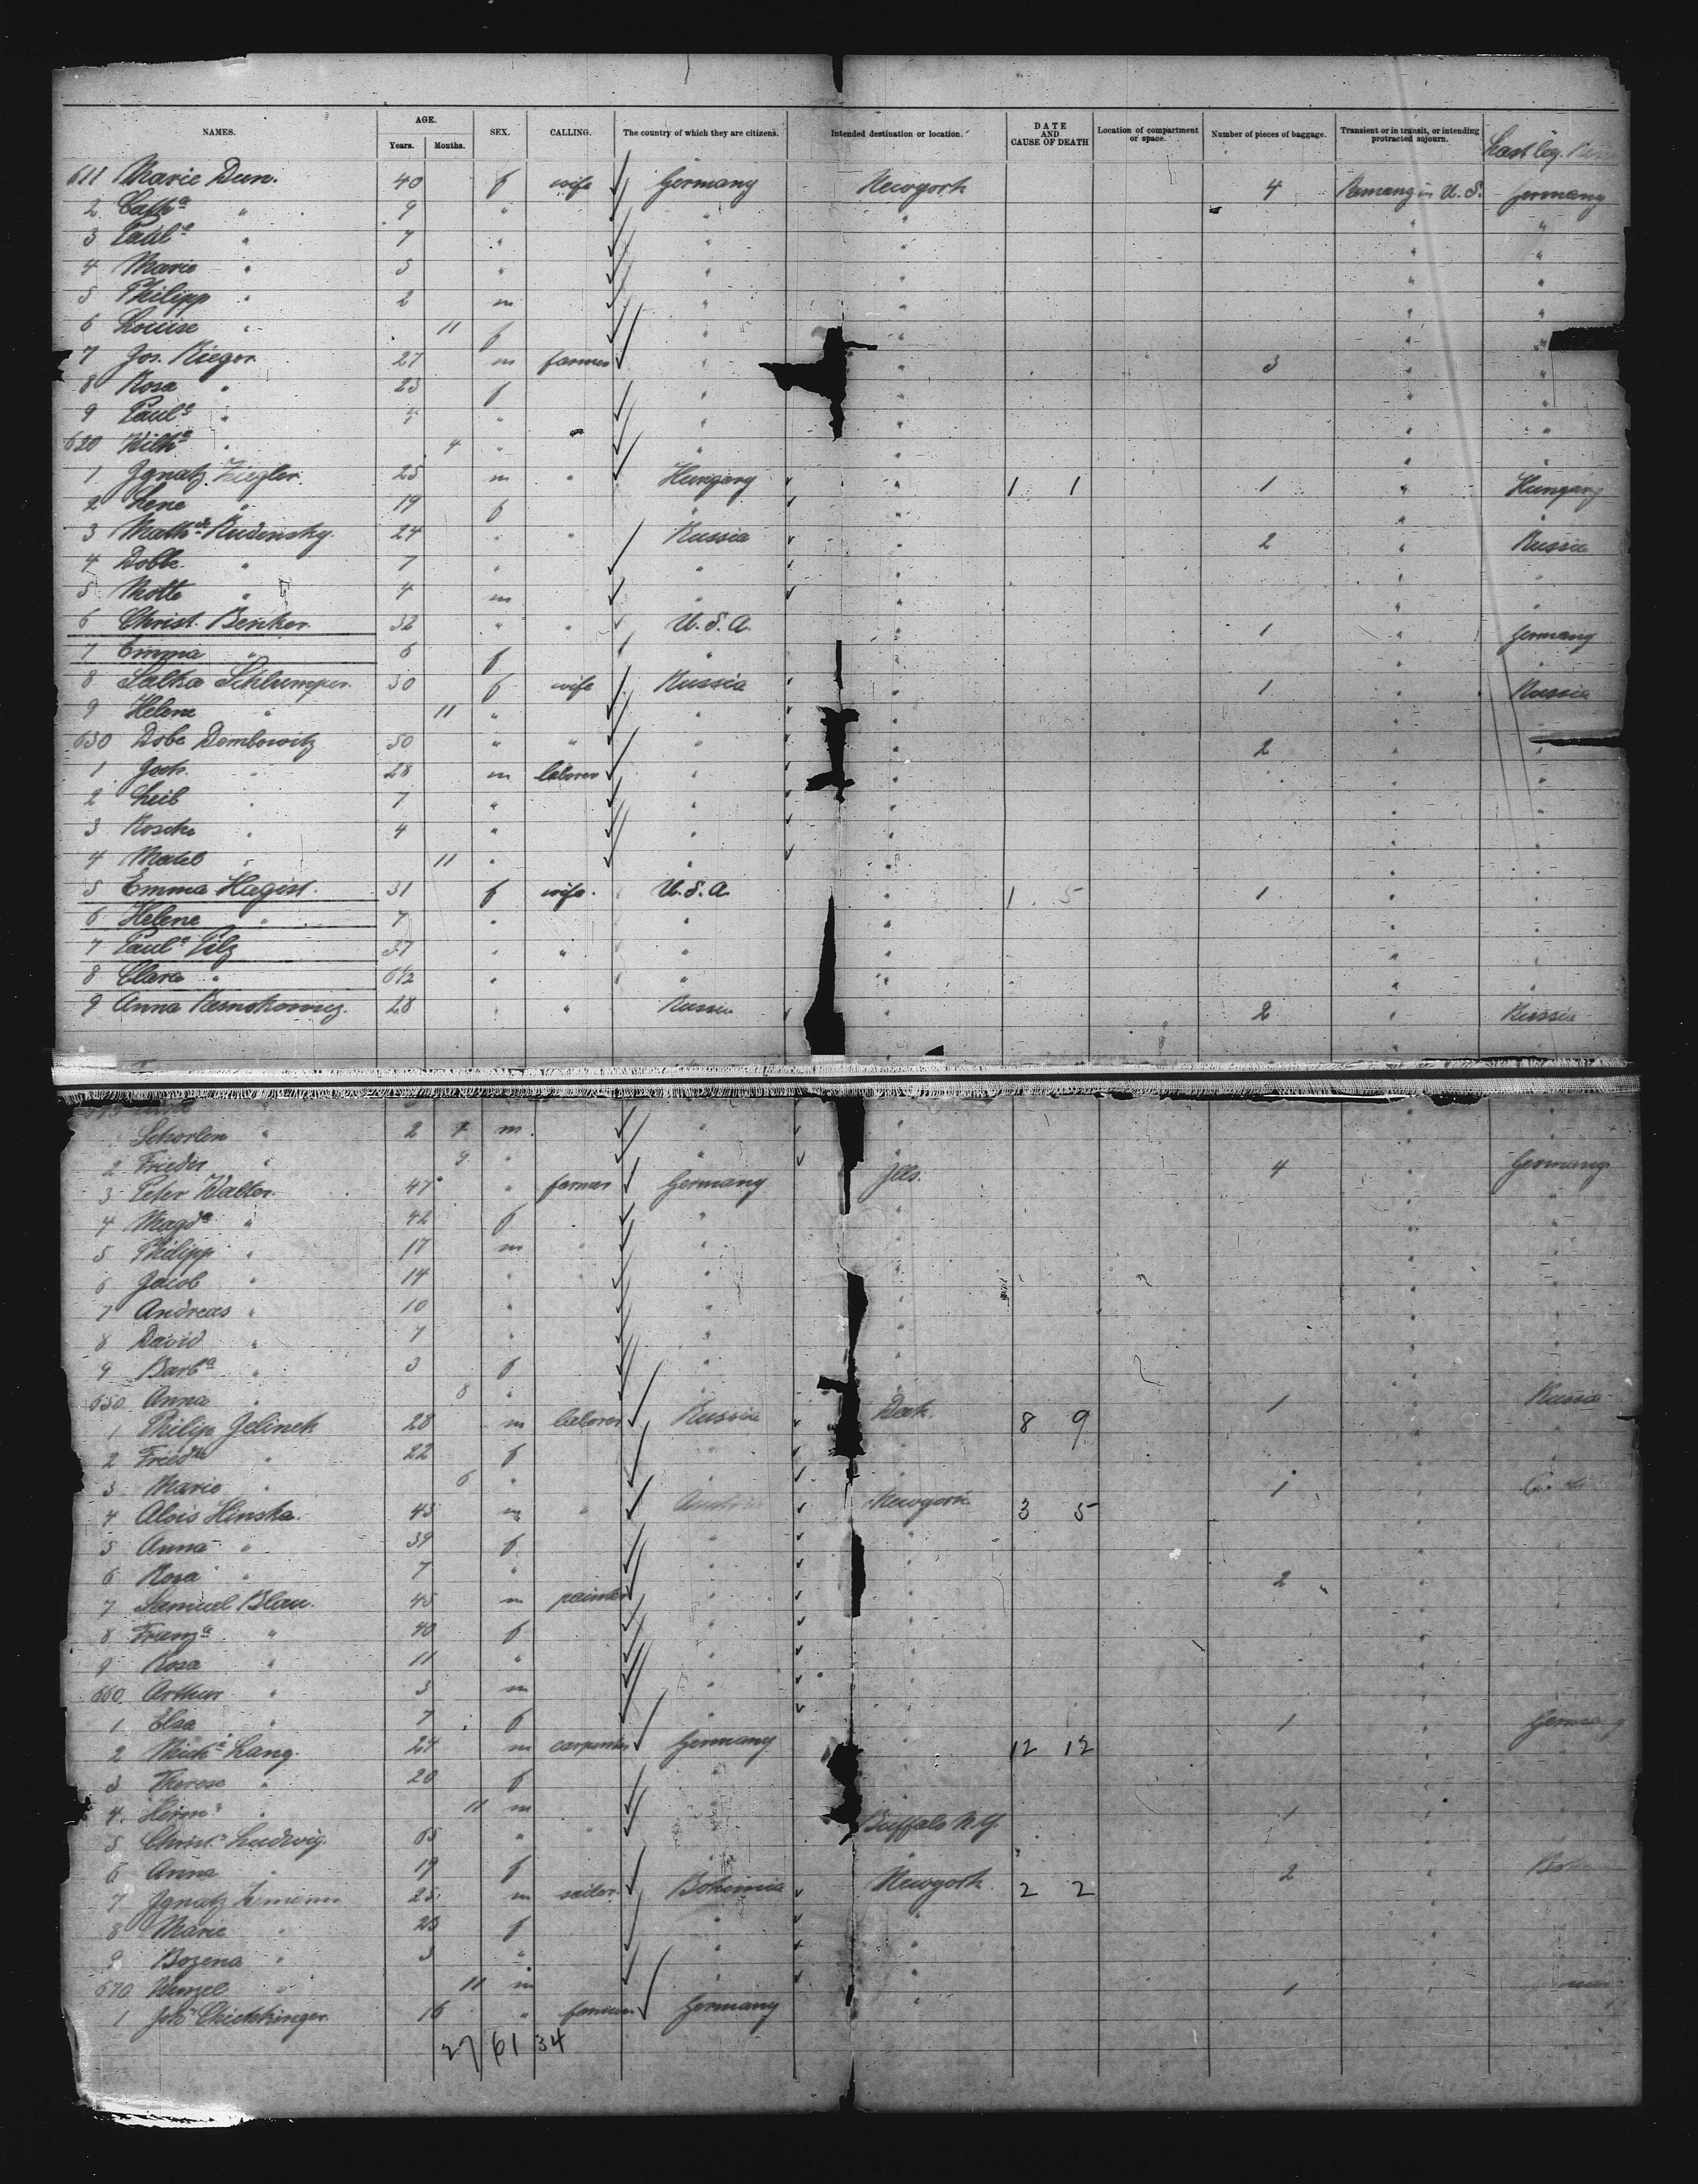 NAMES. AGE. Years. Months. SEX. CALLING. The country of which they are citizens. Intended destination or location. DATE AND CAUSE OF DEATH Location of compartment or space. Number of pieces of baggage. Transient or in transit, or intending protracted sojourn. Last leg.
611 Marie Dun. 40 f wife Germany Newyork 4 Remang in U.S. Germany
2 Cath.a " 9 " " " " "
3 Paul.e " 7 " " " " "
4 Marie " 5 " " " " "
5 Philipp " 2 m " " " "
6 Louise " 11 f " " " "
7 Jos. Rieger 27 m farmer " " 3 " "
8 Rosa " 23 f " " " "
9 Paul.e " 4 " " " " "
620 Wilh.e " 4 " " " " "
1 Ignatz Ziegler. 25 m " Hungary " 1 1 1 " Hungary
2 Lene " 19 f " " " "
3 Math.de Rudensky. 24 " " Russia " 2 " Russia
4 Dobbe. " 7 " " " " "
5 Motte " 4 m " " " "
6 Christ. Benker. 32 " " U.S.A. " 1 " Germany
7 Emma " 6 f " " " "
8 Salka Schlumper. 30 f wife Russia " 1 " Russia
9 Helene " 11 " " " " "
630 Dobe Dembowitz 50 " " " " 2 " "
1 Joch. " 28 m laborer " " " "
2 Leib " 7 " " " " "
3 Rosche " 4 " " " " "
4 Matel " 11 " " " " "
5 Emma Hagist. 31 f wife. U.S.A. " 1 5 1 " "
6 Helene " 7 " " " " "
7 Paul.e Pilz 37 " " " " " "
8 Clara " 6 1/2 " " " " "
9 Anna 28 " " Russia " 2 " Russia
Schorlen " 2 m " " " "
2 Frieder " 9 " " " "
3 Peter Walter. 47 " farmer Germany Ills. 4 " Germany
4 Magd.a " 42 f " " " "
5 Philipp " 17 m " " " " "
6 Jacob " 14 " " " " " "
7 Andreas " 10 " " " " "
8 David " 7 " " " " "
9 Barb.a " 3 f " " " "
650 Anna " 8 " " " " "
1 Philip Jelinek 28 m laborer Russia Dak. 8 9 1 " Russia
2 Fried.ke " 22 f " " " "
3 Marie " 6 " " " " "
4 Alois Hinska. 43 m " Austria Newyork 3 5 1 "
5 Anna " 39 f " " " "
6 Rosa " 7 " " " " "
7 Samuel Blau. 45 m painter " " 2 " "
8 Franz.a " 40 f " " " "
9 Rosa " 11 " " " " "
660 Arthur " 3 m " " " "
1 Elsa " 7 f " " " "
2 Mich.l Lang. 24 m carpenter Germany " 12 12 1 " Germany
3 Therese " 20 f " " " "
4 Herm.n " 11 m " " " "
5 Christ.n Ludwig. 65 " " " Buffalo N.Y. 1 " "
6 Anna " 19 f " " " "
7 Ignatz 25 m Bohemia Newyork 2 2 2 "
8 Marie " 23 f " " " "
9 Bozena " 3 " " " " "
670 Wenzel " 11 m " " " "
1 Joh. 16 " farmer Germany " 1 "
27/61/34